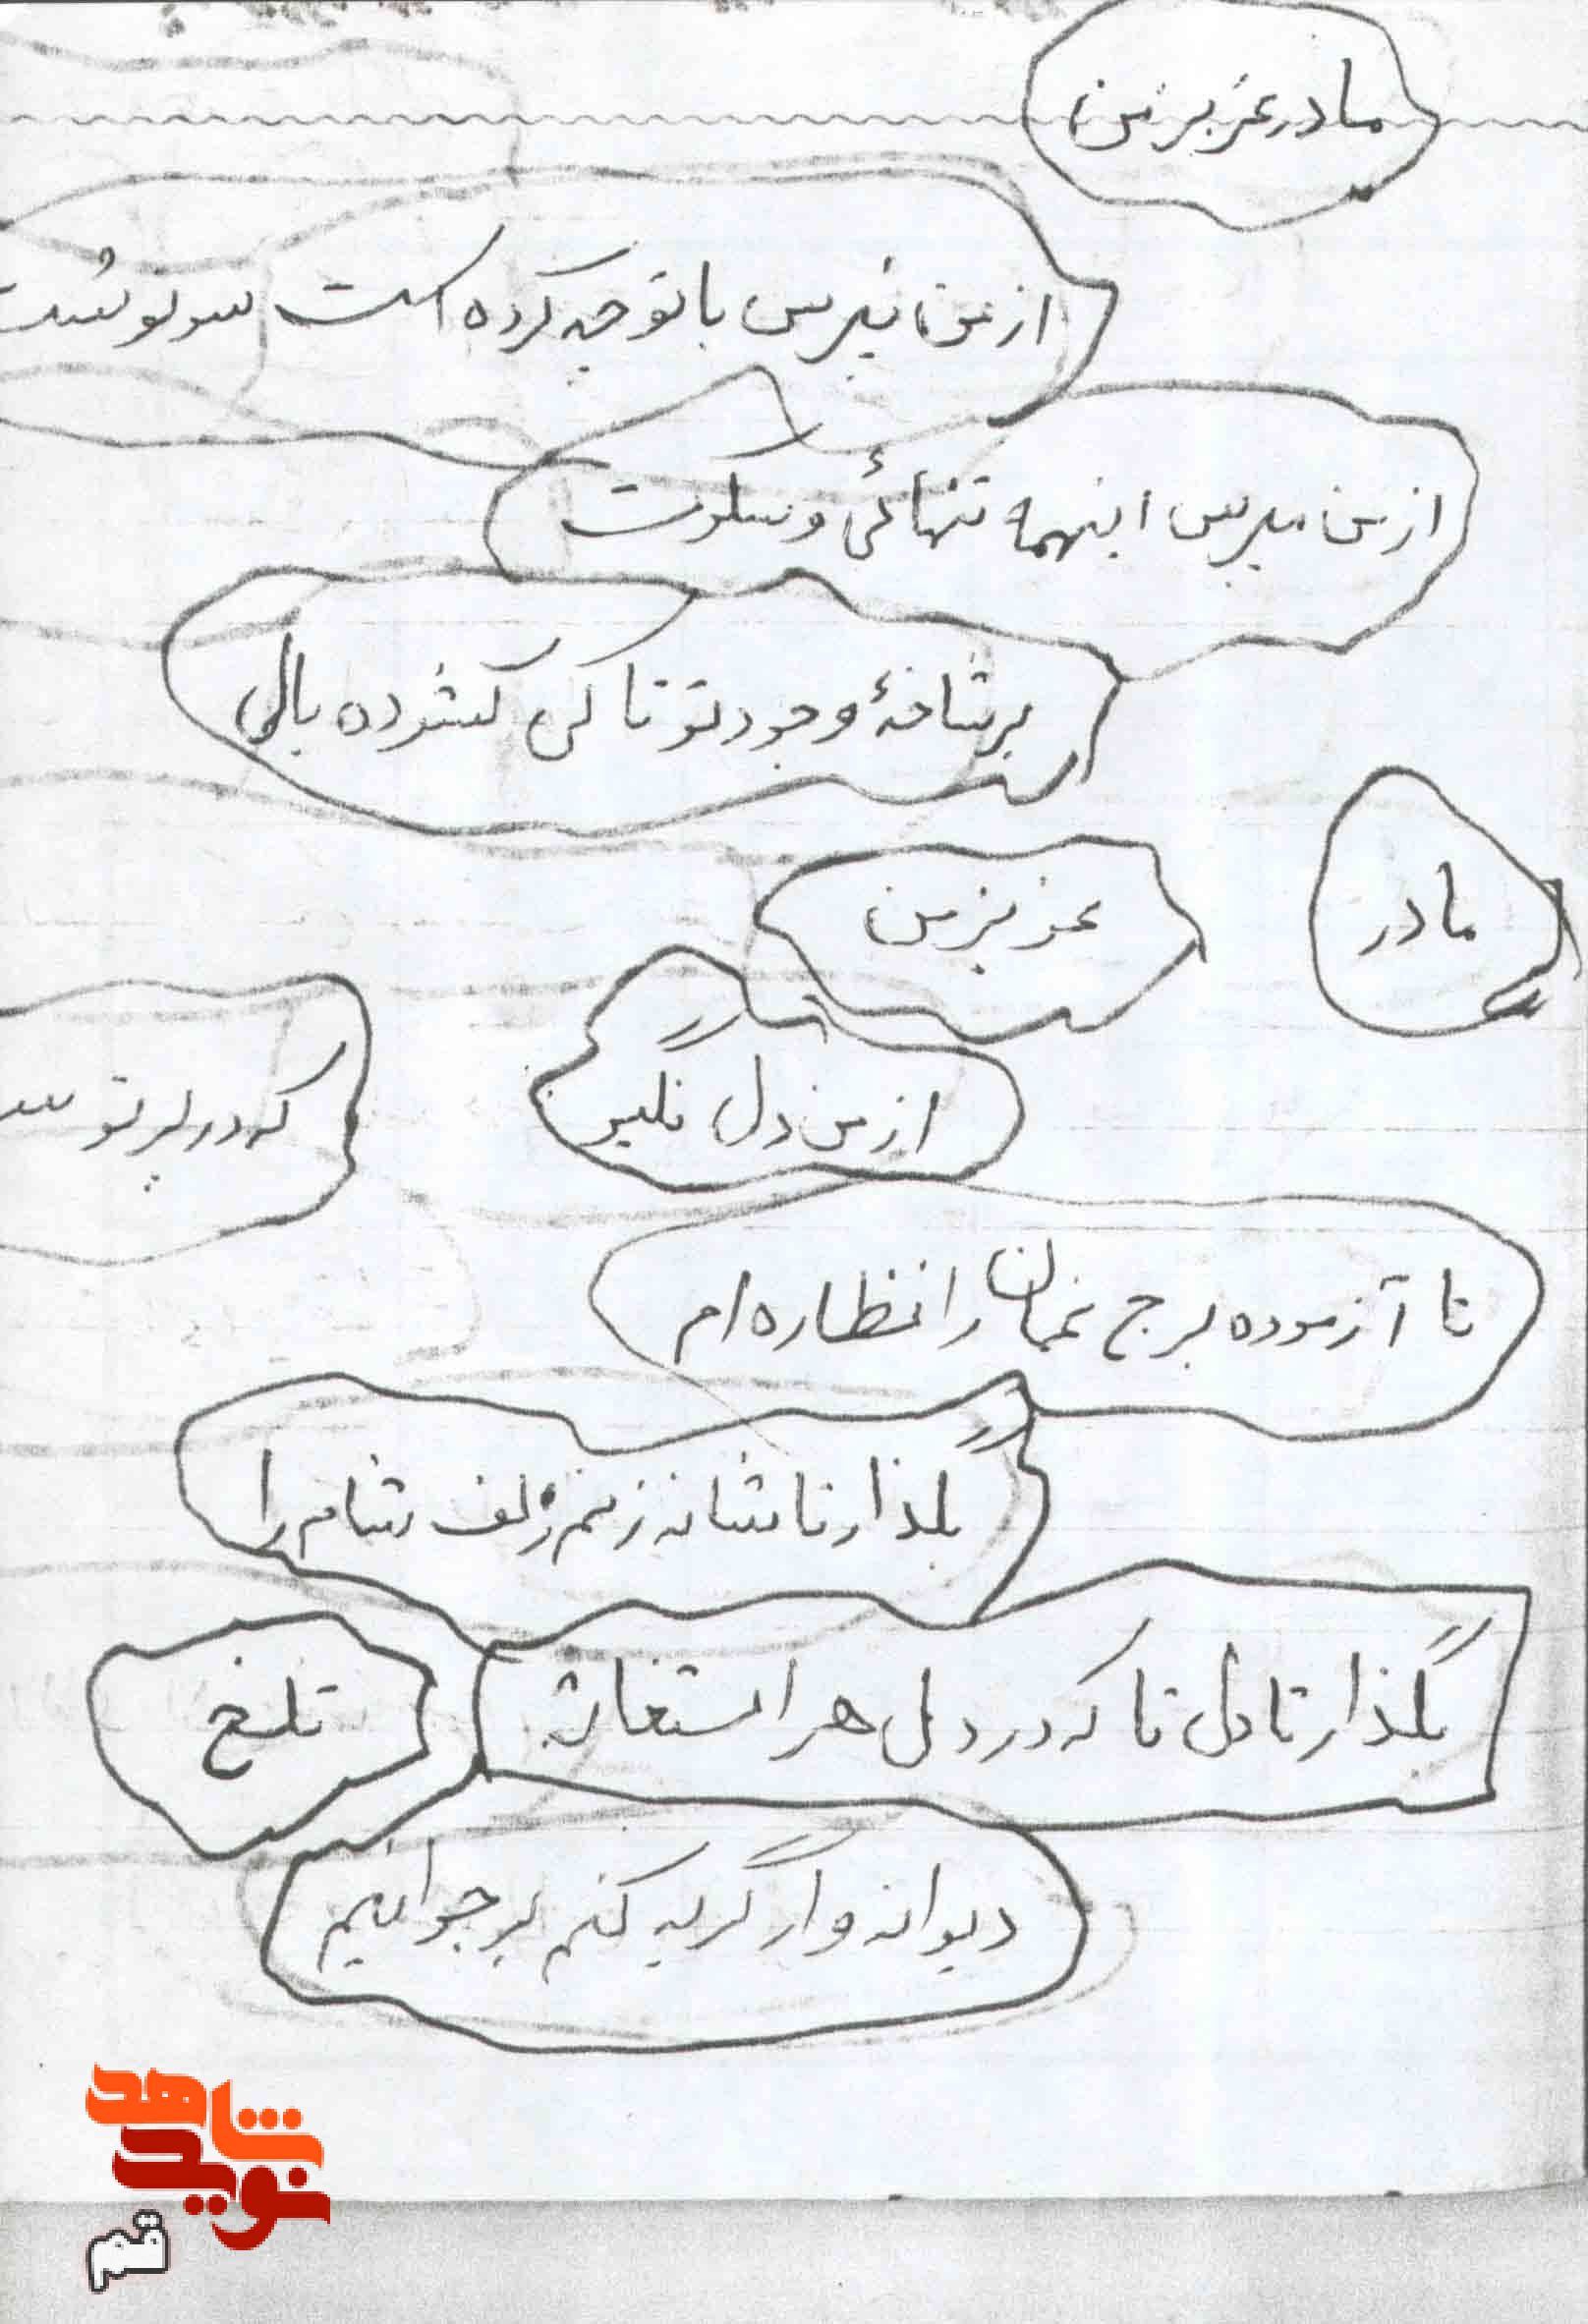 مادر عزیز من
از من نپرس با تو چه کرده است سرنوشت
از من مپرس اینهمه تنهائی و سکوت
بر شاخهٔ وجود تو تا کی گشوده بال
مادر عزیز من
از من دل نگیر که در پرتو
تا آزموده برج غمان را نظاره ام
بگذار تا شانه زنم زلف شام را
بگذار تا دل تا که در دل هر استغاثه تلخ
دیوانه وار گریه کنم بر جوانیم
شاهد
نوید
قم